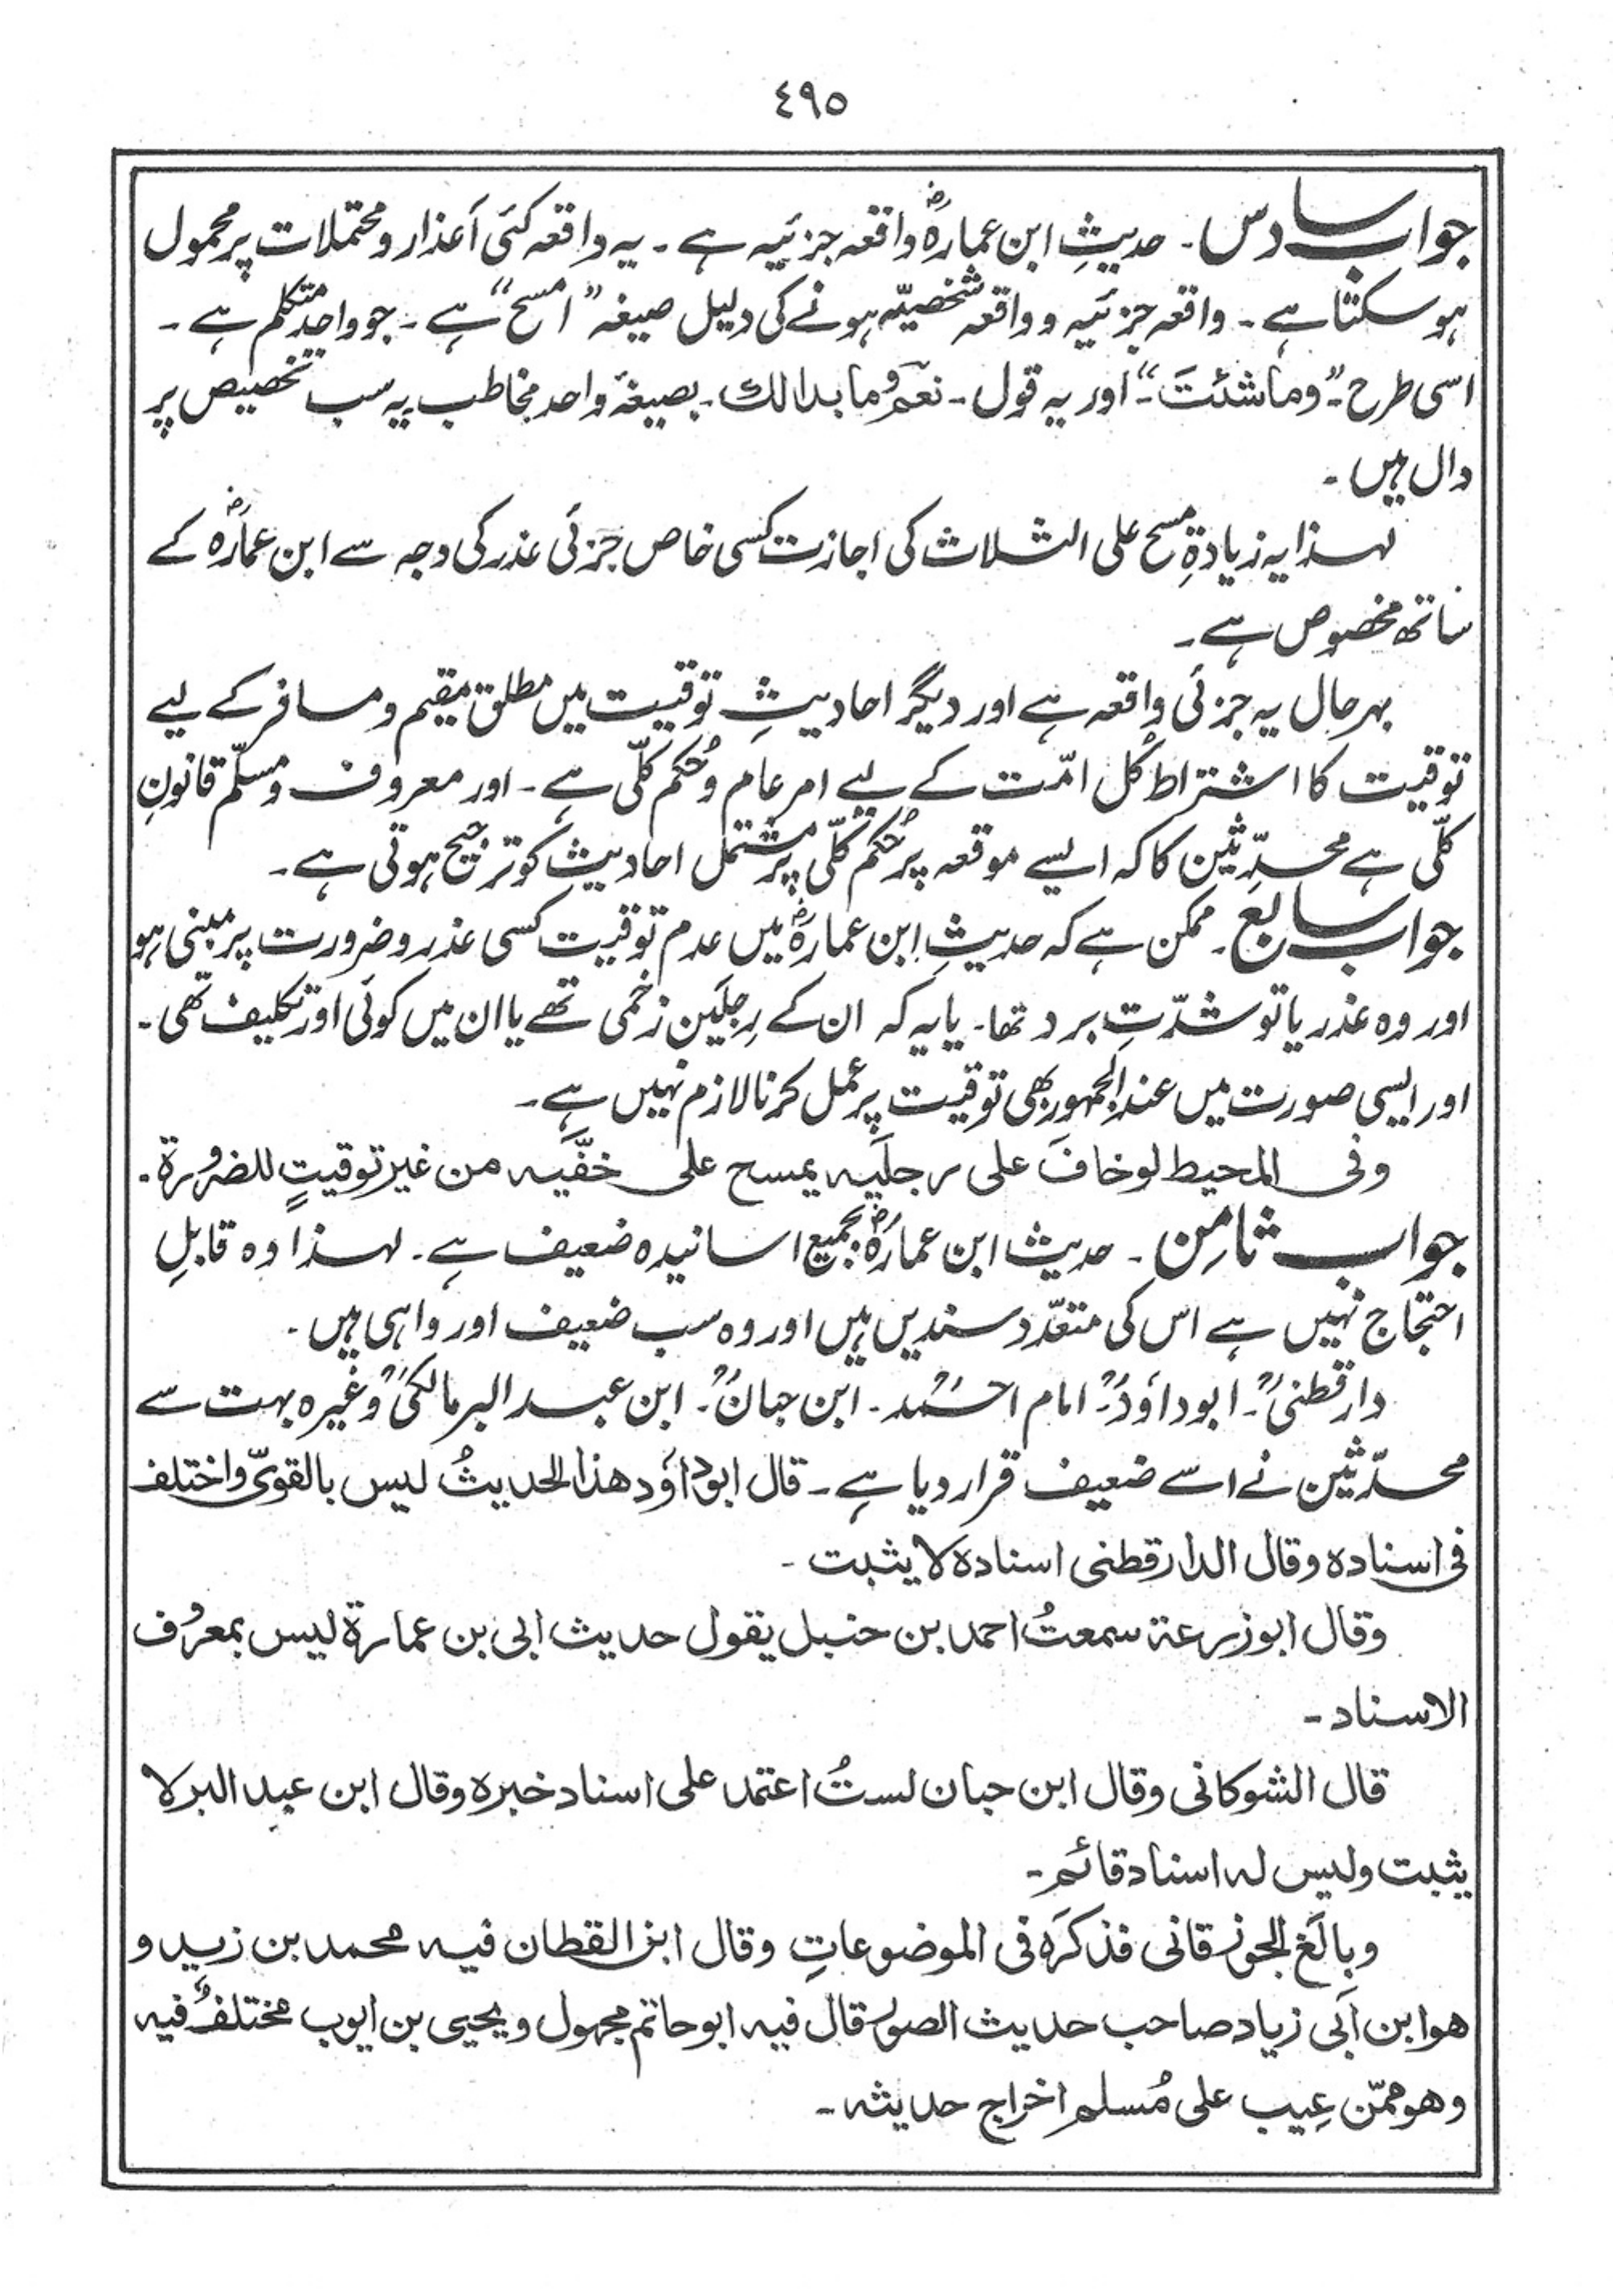 ٤٩٥
جواب سادس ۔ حدیثِ ابن عمارہؓ واقعہ جزئیہ ہے ۔ یہ واقعہ کئی اَعذار و محتملات پر محمول
ہو سکتا ہے ۔ واقعہ جزئیہ و واقعہ شخصیّہ ہونے کی دلیل صیغہ ”امسح“ ہے ۔ جو واحد متکلم ہے ۔
اسی طرح ۔”وما شئتَ“۔ اور یہ قول ۔ نعم وما بدا لك ۔ بصیغۂ واحد مخاطب یہ سب تخصیص پر
دال ہیں ۔
لہذا یہ زیادۃِ مسح علی الثلاث کی اجازت کسی خاص جزئی عذر کی وجہ سے ابن عمارہؓ کے
ساتھ مخصوص ہے ۔
بہرحال یہ جزئی واقعہ ہے اور دیگر احادیثِ توقیت میں مطلق مقیم و مسافر کے لیے
توقیت کا اشتراط کُل امّت کے لیے امر عام و حُکم کلّی ہے ۔ اور معروف و مسلّم قانونِ
کلّی ہے محدّثین کا کہ ایسے موقعہ پر حُکم کلّی پر مشتمل احادیث کو ترجیح ہوتی ہے ۔
جواب سابع ۔ ممکن ہے کہ حدیثِ ابن عمارہؓ میں عدم توقیت کسی عذر و ضرورت پر مبنی ہو
اور وہ عذر یا تو شدّتِ برد تھا ۔ یا یہ کہ ان کے رِجلَین زخمی تھے یا ان میں کوئی اور تکلیف تھی ۔
اور ایسی صورت میں عند الجمہور بھی توقیت پر عمل کرنا لازم نہیں ہے ۔
وفی المحیط لو خافَ علی رجلَیہ یمسح علی خفَّیہ من غیر توقیتٍ للضرورۃ ۔
جواب ثامِن ۔ حدیث ابن عمارہؓ بجمیع اسانیدہ ضعیف ہے ۔ لہذا وہ قابلِ
احتجاج نہیں ہے اس کی متعدّد سندیں ہیں اور وہ سب ضعیف اور واہی ہیں ۔
دارقطنیؒ ۔ ابوداؤدؒ ۔ امام احمدؒ ۔ ابن حبانؒ ۔ ابن عبد البر مالکیؒ وغیرہ بہت سے
محدّثین نے اسے ضعیف قرار دیا ہے ۔ قال ابوداؤد ھذا الحدیثُ لیس بالقویّ واختلف
فی اسنادہ وقال الدارقطنی اسنادہ لا یثبت ۔
وقال ابو زرعۃ سمعتُ احمد بن حنبل یقول حدیث ابی بن عمارۃ لیس بمعروف
الاسناد ۔
قال الشوکانی وقال ابن حبان لستُ اعتمد علی اسناد خبرہ وقال ابن عبد البر لا
یثبت ولیس لہ اسناد قائم ۔
وبالَغ الجوزقانی فذکرَہ فی الموضوعاتِ وقال ابن القطان فیہ محمد بن زید و
ھو ابن اَبی زیاد صاحب حدیث الصور قال فیہ ابو حاتم مجھول ویحیی بن ایوب مختلفٌ فیہ
وھو ممّن عِیب علی مُسلم اخراج حدیثہ ۔